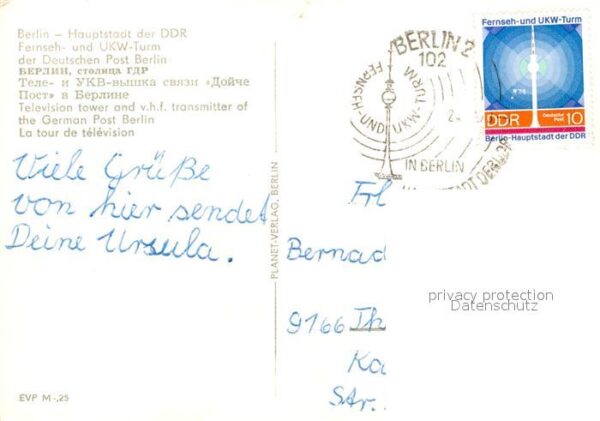 Berlin – Hauptstadt der DDR
Fernseh- und UKW-Turm
der Deutschen Post Berlin
БЕРЛИН, столица ГДР
Теле- и УКВ-вышка связи «Дойче
Пост» в Берлине
Television tower and v.h.f. transmitter of
the German Post Berlin
La tour de télévision
Viele Grüße
von hier sendet
Deine Ursula.
EVP M -,25
PLANET-VERLAG, BERLIN
BERLIN 2
102
FERNSEH-UND UKW-TURM
IN BERLIN
HAUPTSTADT DER DDR
Fernseh- und UKW-Turm
DDR
Deutsche
Post
10
Berlin-Hauptstadt der DDR
Frl
Bernad
9166 Th
Ka
Str.
privacy protection
Datenschutz